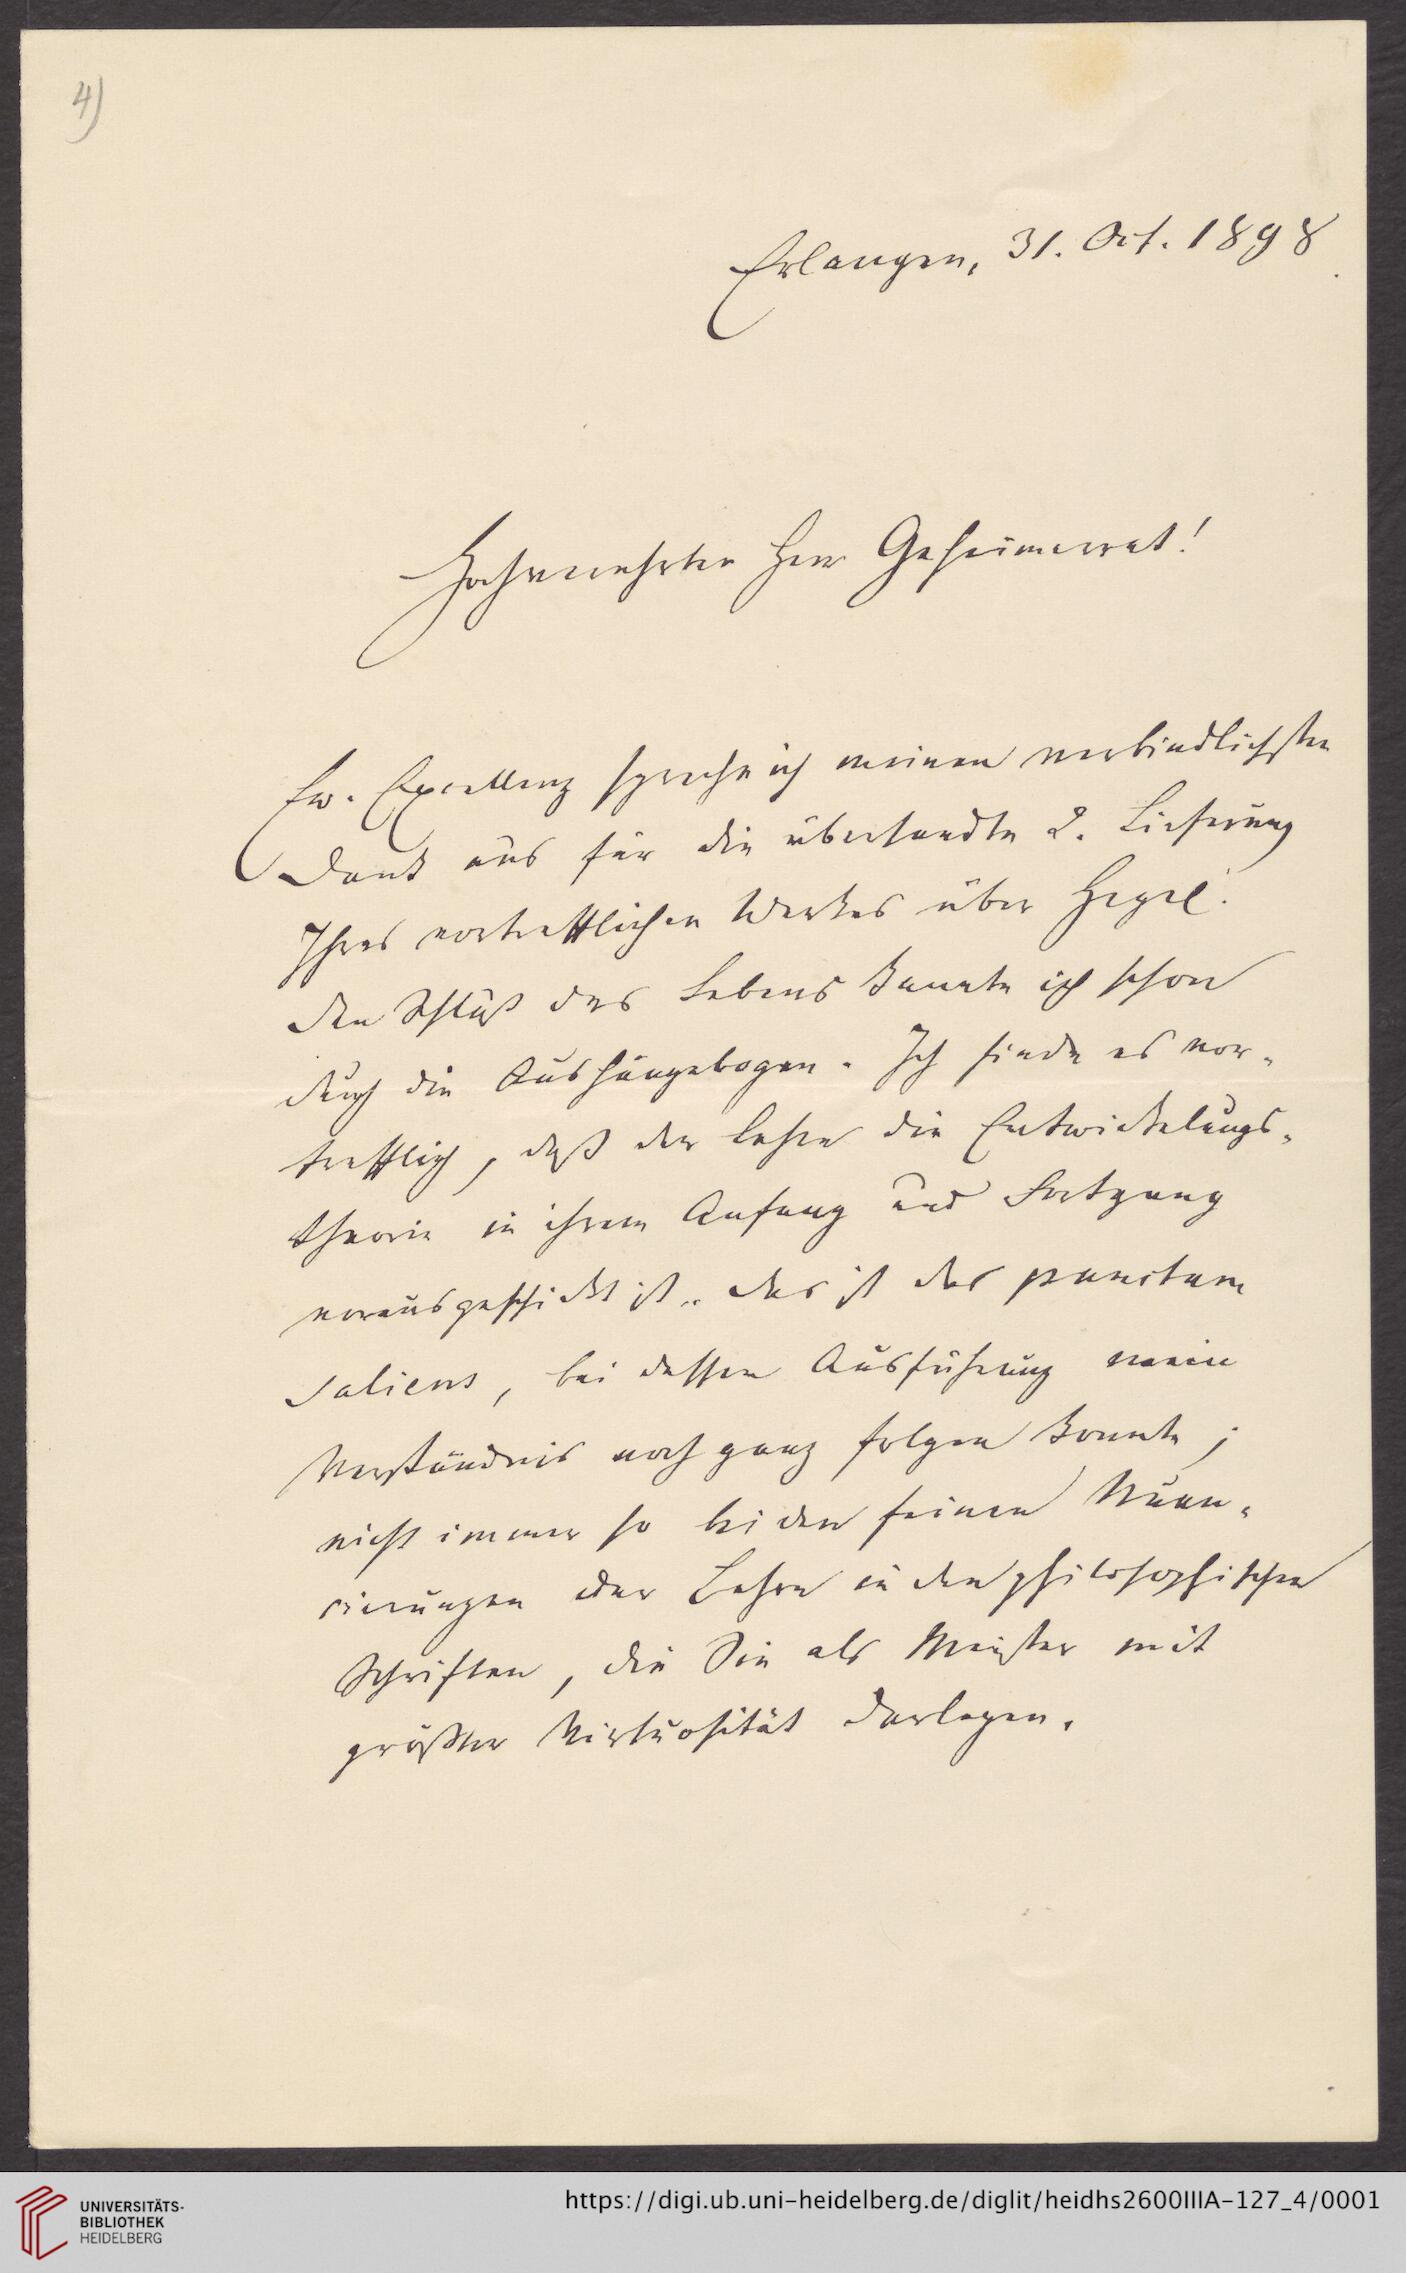 4)
Erlangen, 31. Oct. 1898.
Hochverehrter Herr Geheimerrat!
Ew. Excellenz spreche ich meinen verbindlichsten
Dank aus für die übersandte 2. Lieferung
Ihres vortrefflichen Werkes über Hegel.
Den Schluß des Lebens kannte ich schon
durch die Aushängebogen. Ich finde es vor-
trefflich, daß der Lehre die Entwickelungs-
theorie in ihrem Anfang und Fortgang
vorausgeschickt ist. das ist das punctum
saliens, bei dessen Ausführung mein
Verständnis noch ganz folgen konnte;
nicht immer so bei den feinen Nuan-
cierungen der Lehre in den philosophischen
Schriften, die Sie als Meister mit
größter Virtuosität darlegen.
UNIVERSITÄTS-
BIBLIOTHEK
HEIDELBERG
https://digi.ub.uni-heidelberg.de/diglit/heidhs2600IIIA-127_4/0001